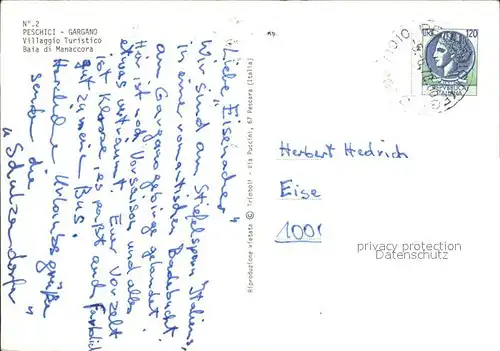 N°.2
PESCHICI - GARGANO
Villaggio Turistico
Baia di Manaccora
Liebe „Eisenacher"
Wir sind am Stiefelsporn Italiens,
in einer romantischen Badebucht
am Garganogebirge gelandet.
Hier ist noch Vorsaison und alles
etwas verträumt. Euer Vorzelt
ist Klasse, es paßt auch farblich
gut zu meine Bus.
Herzliche Urlaubsgrüße
senden die
„Schulzendorfer"
Riproduzione vietata © Trimboli - Via Puccini, 67 Pescara (Italia)
LIRE 120
Herbert Hedrich
Eise
1001
privacy protection
Datenschutz